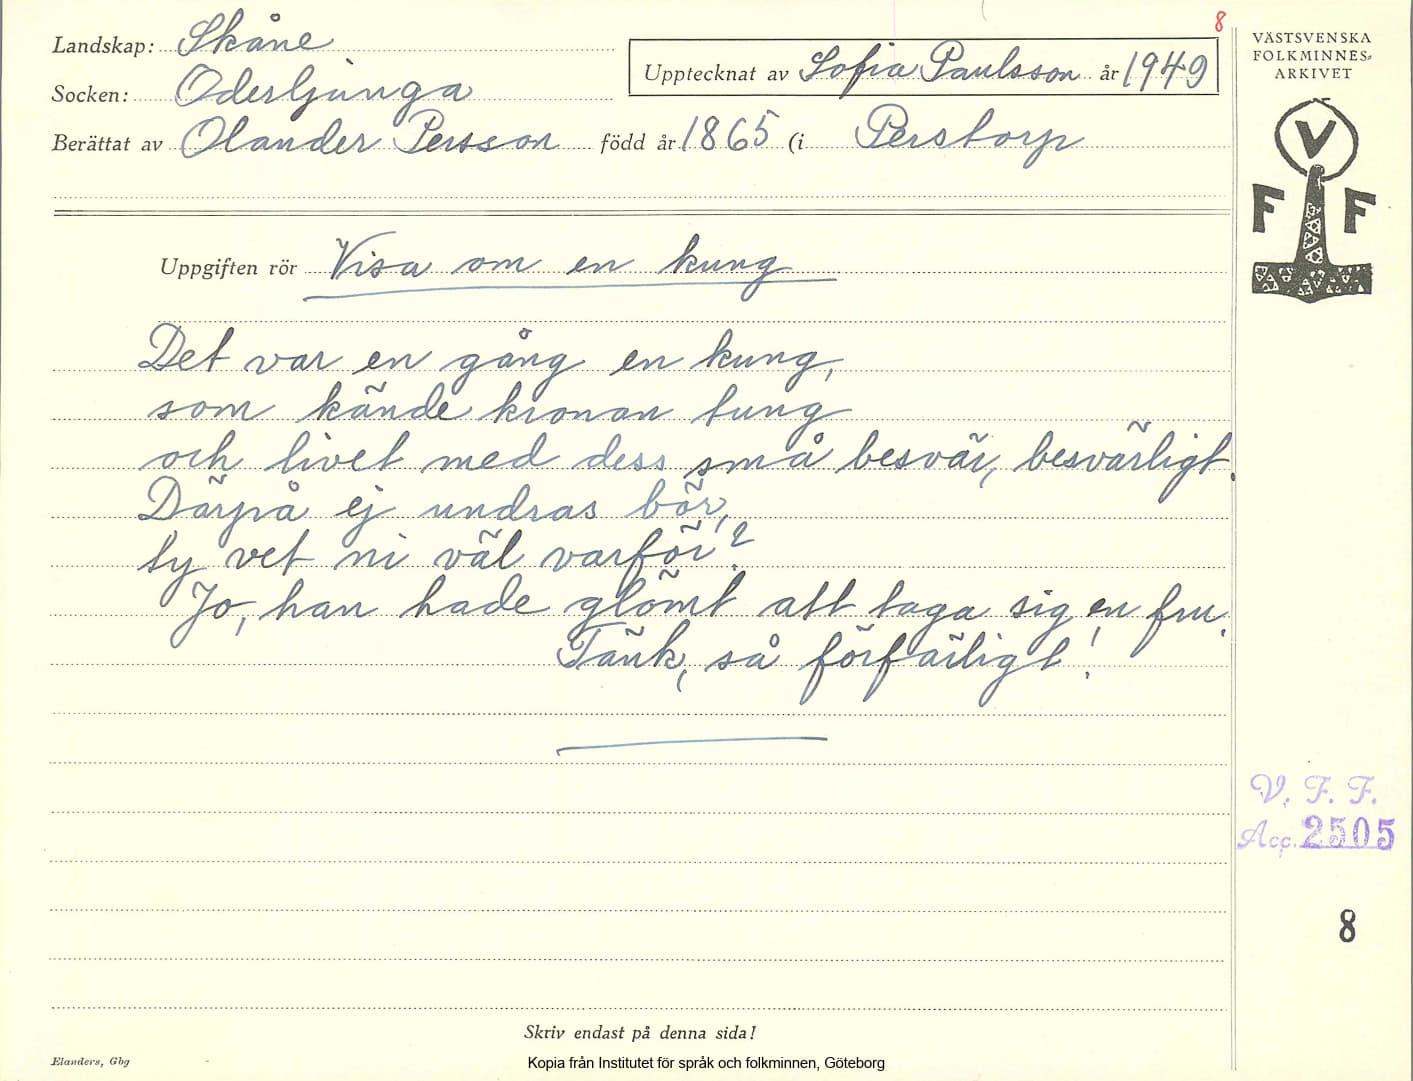 8
Landskap: Skåne
Socken: Oderljunga
Berättat av Olander Persson född år 1865 (i Perstorp
Upptecknat av Sofia Paulsson år 1949
VÄSTSVENSKA
FOLKMINNES-
ARKIVET
V
F F
Uppgiften rör Visa om en kung
Det var en gång en kung,
som kände kronan tung
och livet med dess små besvär, besvärligt.
Därpå ej undras bör,
ty vet ni väl varför?
Jo, han hade glömt att taga sig en fru.
Tänk, så förfärligt!
V. F. F.
Acc. 2505
8
Skriv endast på denna sida!
Elanders, Gbg
Kopia från Institutet för språk och folkminnen, Göteborg